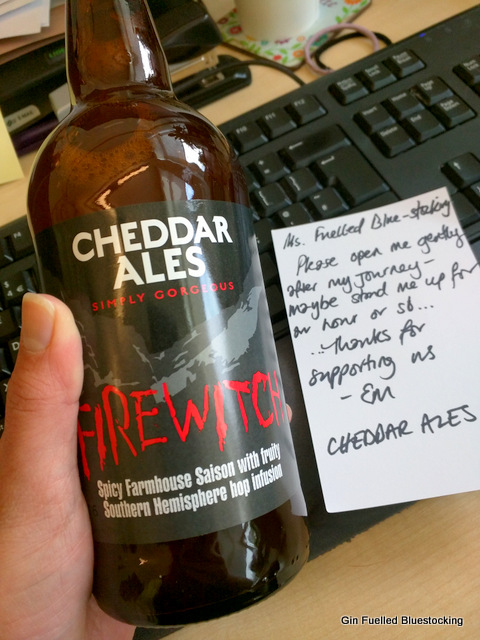 CHEDDAR
ALES
SIMPLY GORGEOUS
FIREWITCH
Spicy Farmhouse Saison with fruity
Southern Hemisphere hop infusion
Ms. Fuelled Blue-stocking
Please open me gently
after my journey-
maybe stand me up for
an hour or so...
...Thanks for
supporting us
- EM
CHEDDAR ALES
Gin Fuelled Bluestocking